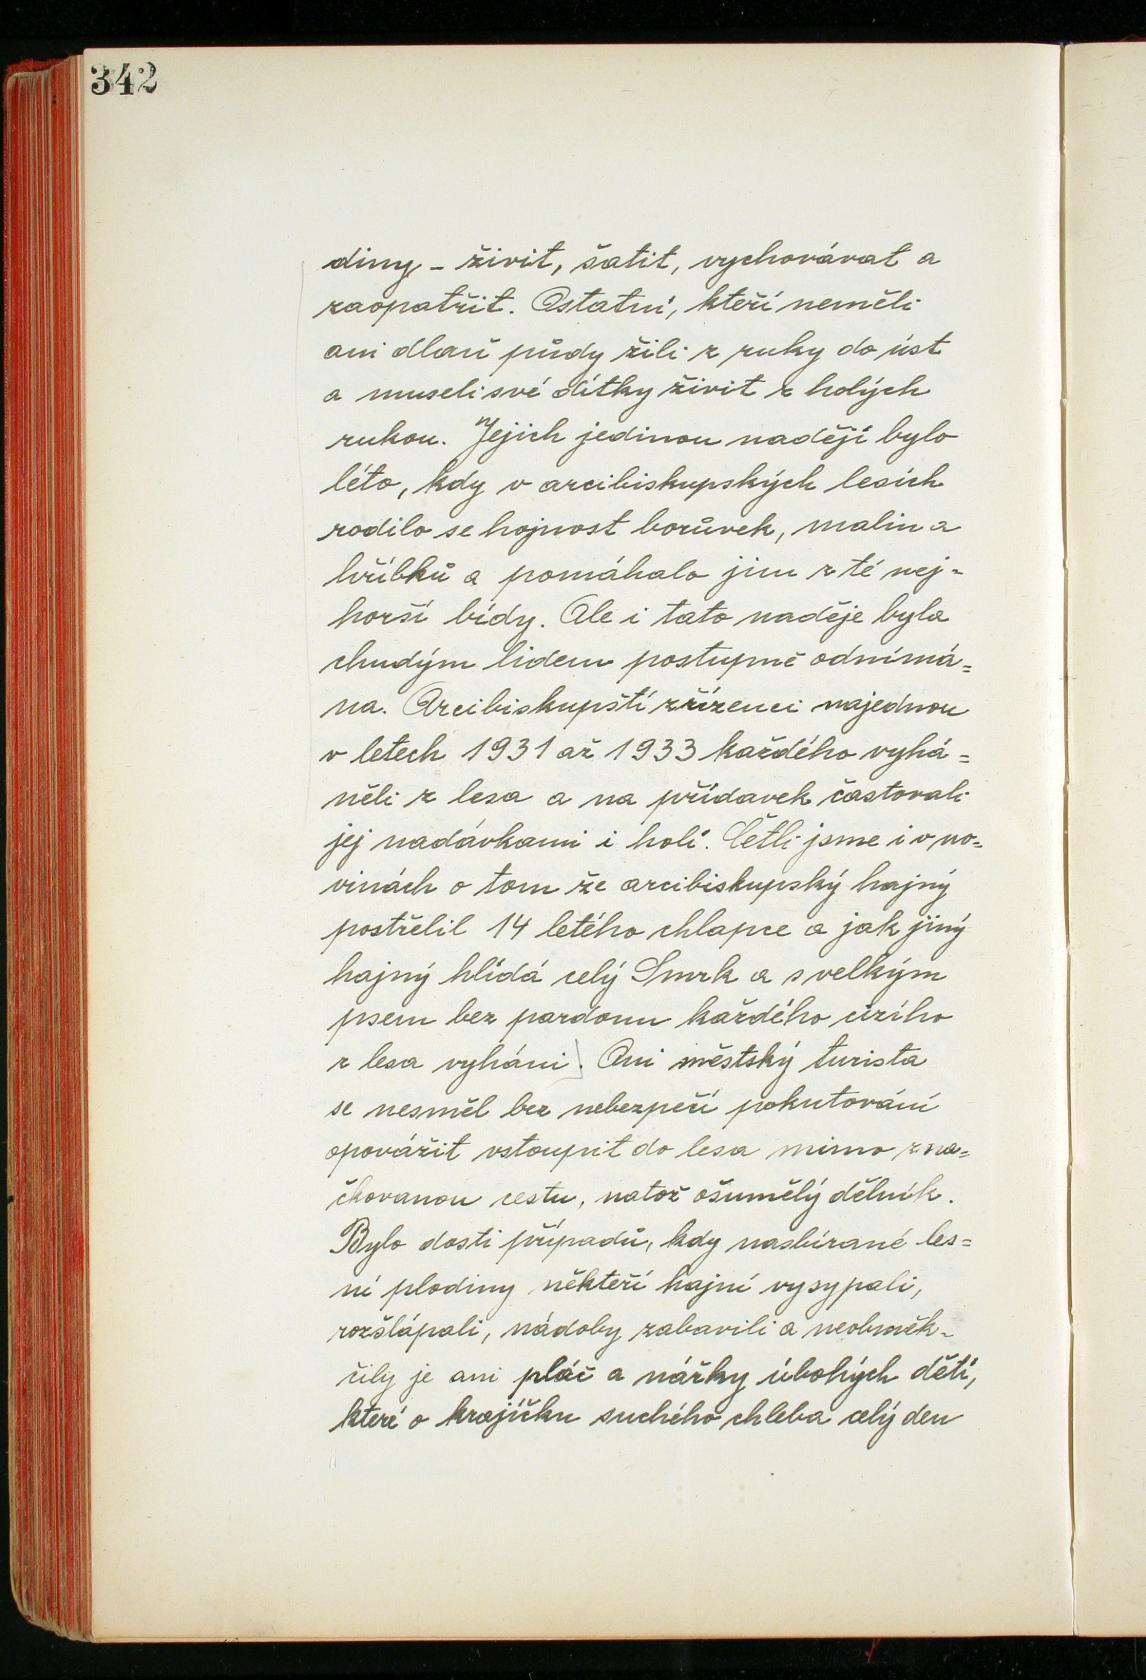 342
diny, – živit, šatit, vychovávat a
zaopatřit. Ostatní, kteří neměli
ani dlaň půdy žili z ruky do úst
a museli své dítky živit z holých
rukou. Jejich jedinou nadějí bylo
léto, kdy v arcibiskupských lesích
rodilo se hojnost borůvek, malin a
hříbků a pomáhalo jim z té nej=
horší bídy. Ale i tato naděje byla
chudým lidem postupně odnímá=
na. Arcibiskupští zřízenci najednou
v letech 1931 až 1933 každého vyhá=
něli z lesa a na přídavek častovali
jej nadávkami i holí. Četli jsme i v no=
vinách o tom že arcibiskupský hajný
postřelil 14 letého chlapce a jak jiný
hajný hlídá celý Smrk a s velkým
psem bez pardonu každého cizího
z lesa vyhání. Ani městský turista
se nesměl bez nebezpečí pokutování
opovážit vstoupit do lesa mimo zna=
čkovanou cestu, natož ošumělý dělník.
Bylo dosti případů, kdy nasbírané les=
ní plodiny někteří hajní vysypali,
rozšlápali, nádoby zabavili a neobměk-
čily je ani pláč a nářky úbohých dětí,
které o krajíčku suchého chleba celý den